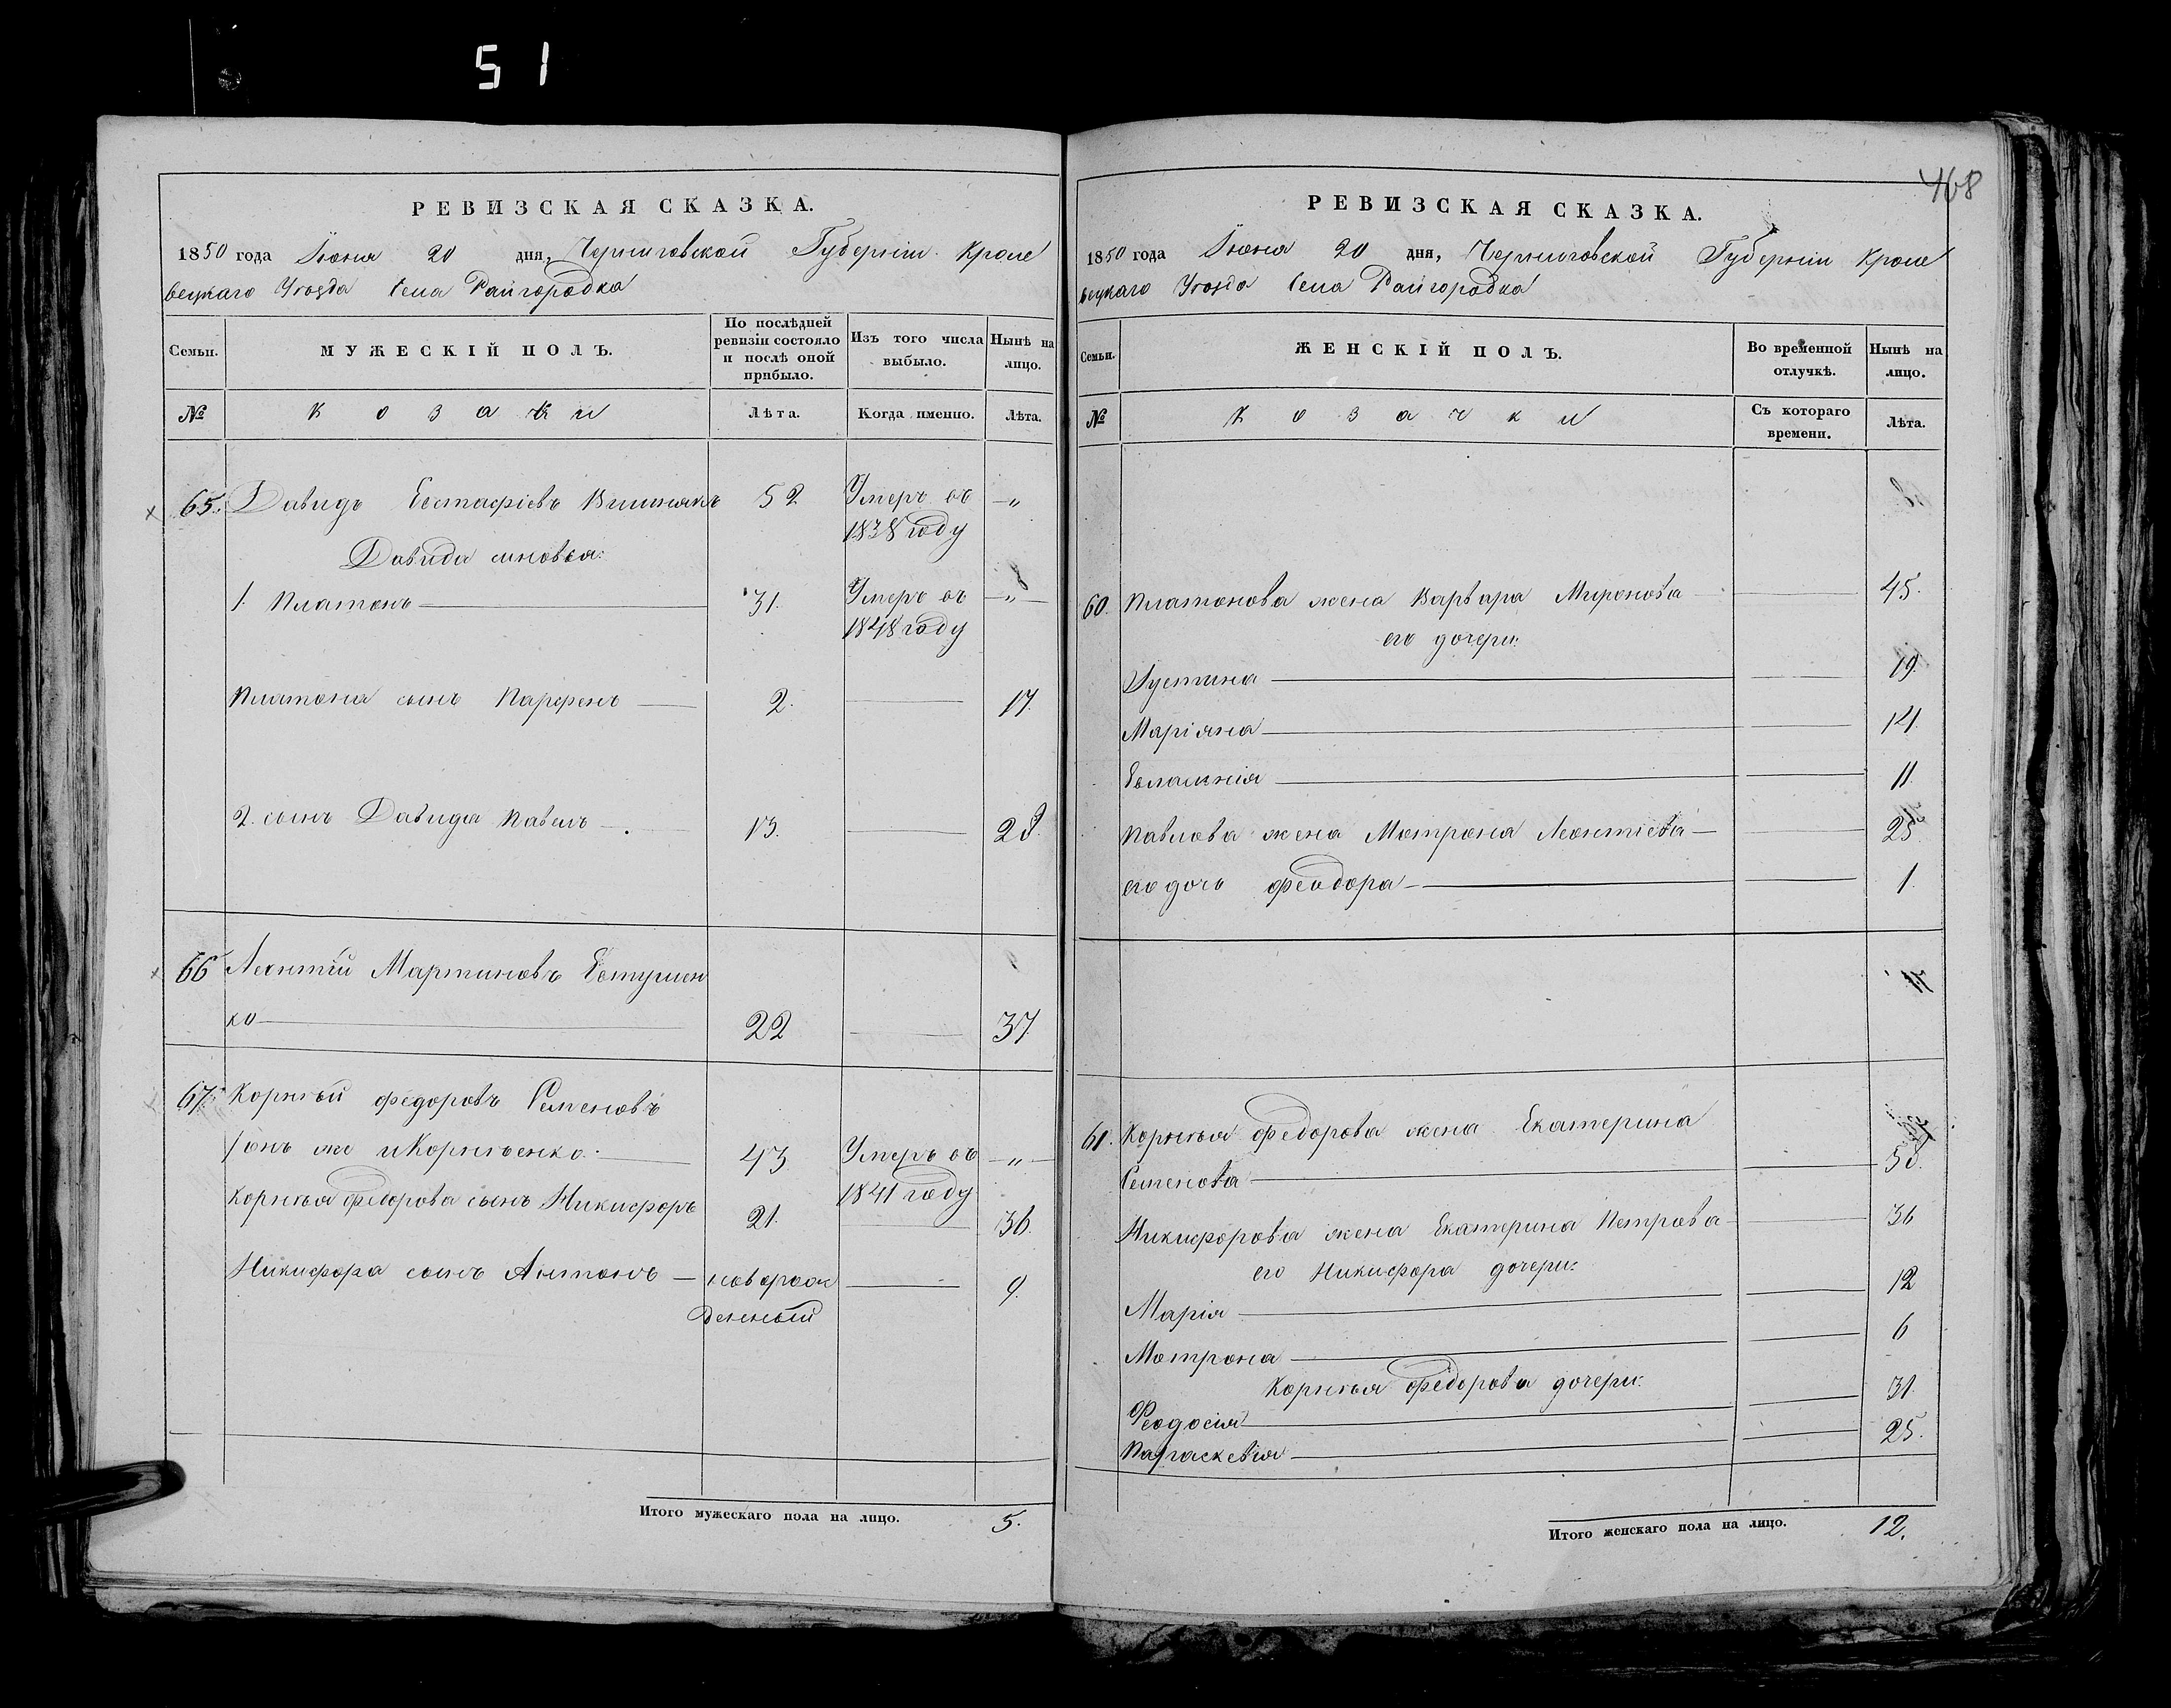 51
468
РЕВИЗСКАЯ СКАЗКА.
1850 года Іюня 20 дня, Черниговской Губерніи Кроле
вецкаго Уезда Села Райгородка
Семьи. МУЖЕСКІЙ ПОЛЪ. По послѣдней ревизіи состояло и послѣ оной прибыло. Изъ того числа выбыло. Нынѣ на лицо.
№ Козаки Лѣта. Когда именно. Лѣта.
65. Давидъ Евстафіевъ Вишнякъ 52 Умеръ въ — „
1838 году
Давида сыновья:
1. Платонъ — 31. Умеръ въ — „ —
1848 году
Платона сынъ Парфенъ — 2. — 17.
2. сынъ Давида Павелъ — 13. — 28.
66 Леонтій Мартиновъ Евтушен
ко — 22 — 37
67. Корнѣй Федоровъ Семеновъ
онъ же и Корнѣенко. — 43 Умеръ въ — „ —
1841 году
Корнѣя Федорова сынъ Никифоръ 21. — 36.
Никифора сынъ Антонъ — новорож — 9.
денный
Итого мужескаго пола на лицо. 5.
РЕВИЗСКАЯ СКАЗКА.
1850 года Іюня 20 дня, Черниговской Губерніи Кроле
вецкаго Уезда Села Райгородка
Семьи. ЖЕНСКІЙ ПОЛЪ. Во временной отлучкѣ. Нынѣ на лицо.
№ Козачки Съ котораго времени. Лѣта.
60. Платонова жена Варвара Миронова — 45.
его дочери:
Іустина — 19.
Маріяна — 14.
Евламнія — 11.
Павлова жена Мотрона Леонтіева — 25.
его дочь Феодора — 1.
61. Корнѣя Федорова жена Екатерина
Семенова — 58.
Никифорова жена Екатерина Петрова — 36
его Никифора дочери:
Марія — 12
Мотрона — 6
Корнѣя Федорова дочери:
Феодосія — 31.
Параскевія — 25.
Итого женскаго пола на лицо. 12.